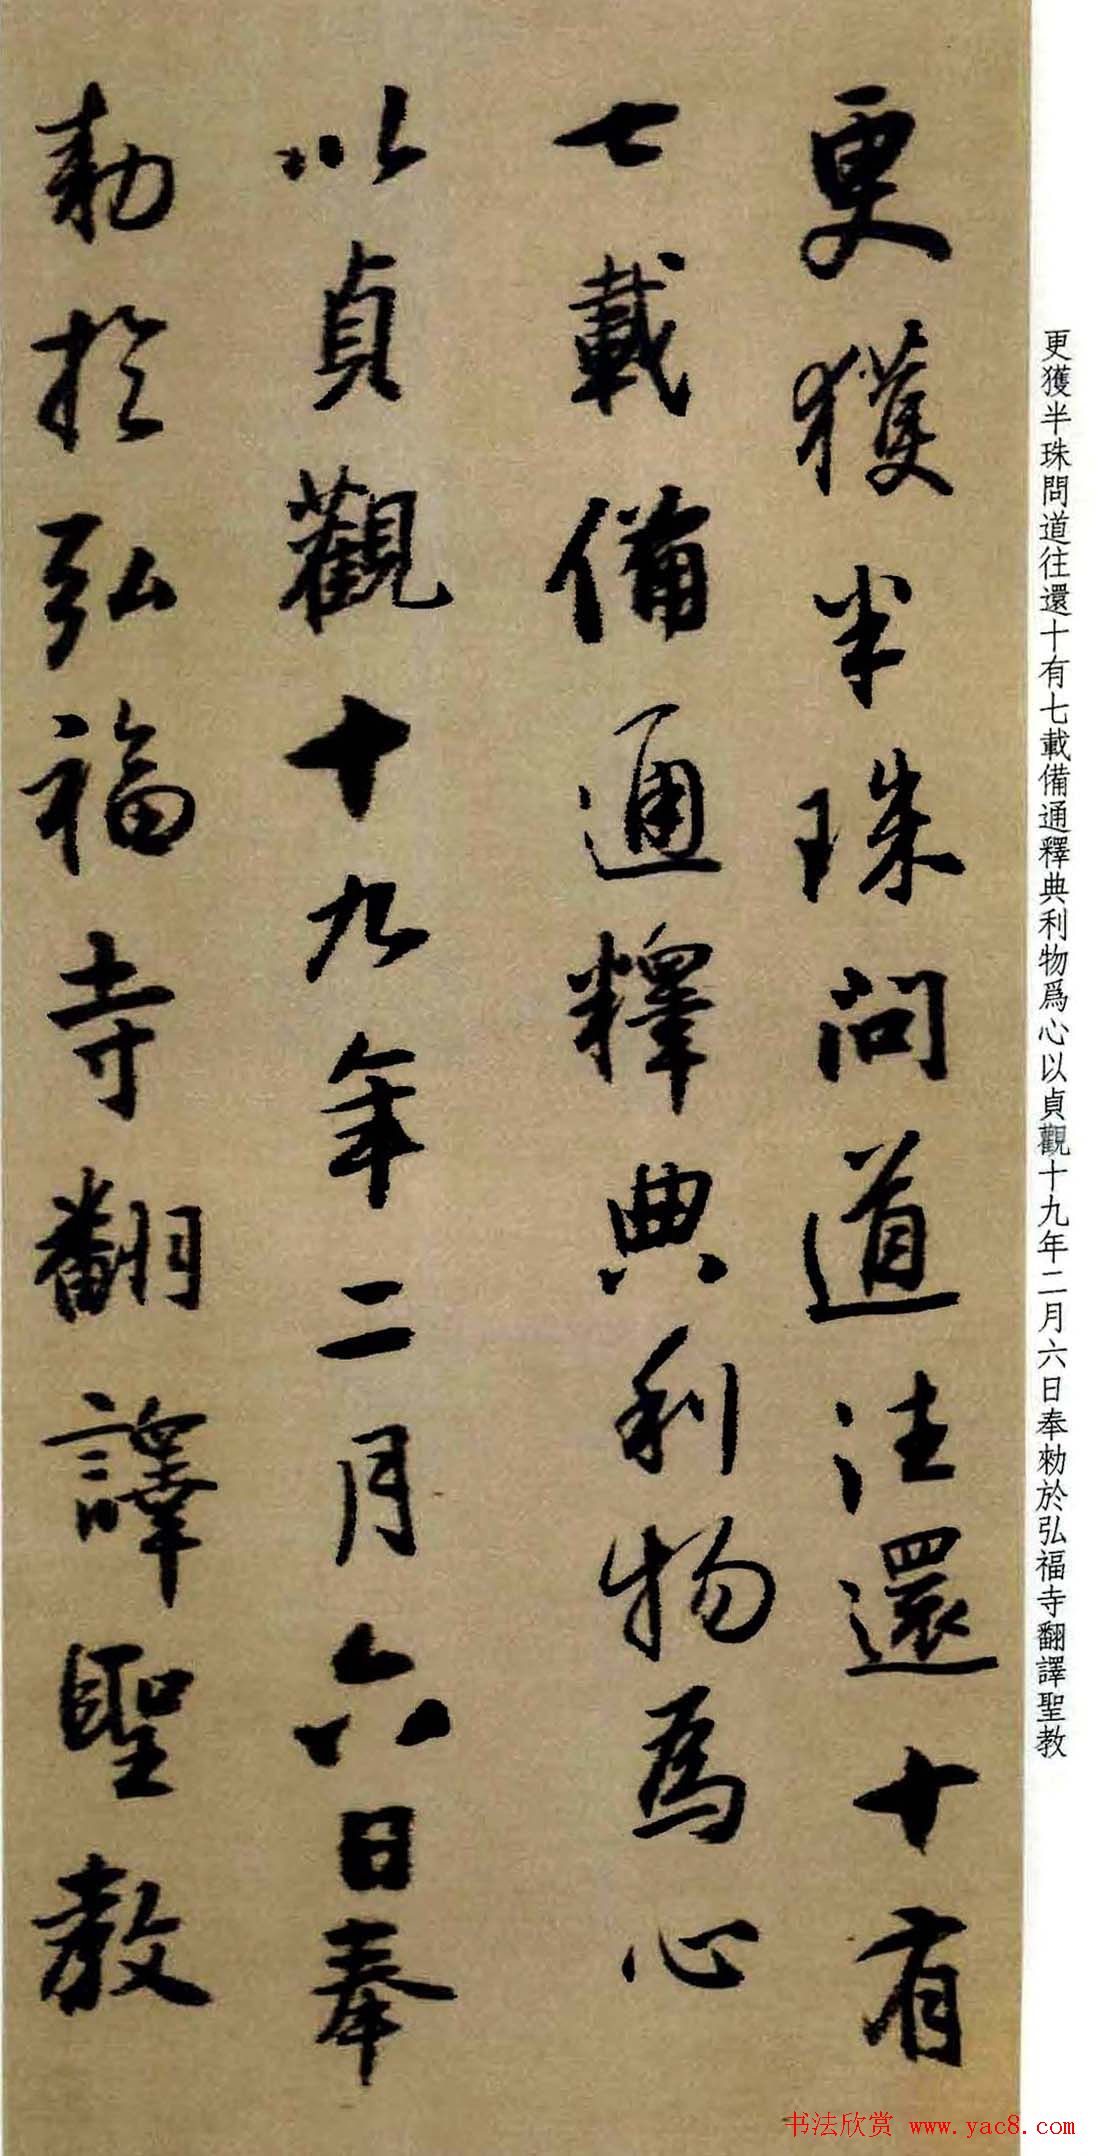 更獲半珠問道往還十有
七載備通釋典利物爲心
以貞觀十九年二月六日奉
勑於弘福寺翻譯聖教
更獲半珠問道往還十有七載備通釋典利物爲心以貞觀十九年二月六日奉勑於弘福寺翻譯聖教
书法欣赏 www.yac8.com